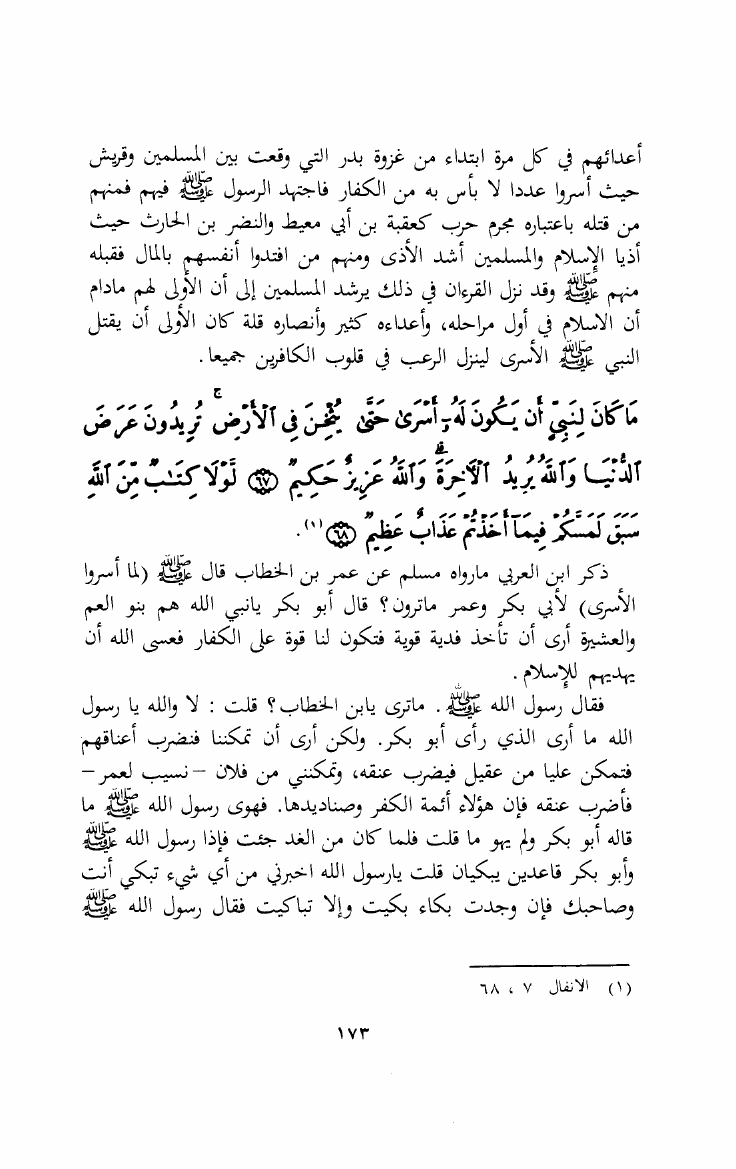 أعدائهم في كل مرة ابتداء من غزوة بدر التي وقعت بين المسلمين وقريش
حيث أسروا عددا لا بأس به من الكفار فاجتهد الرسول ﷺ فيهم فمنهم
من قتله باعتباره مجرم حرب كعقبة بن أبي معيط والنضر بن الحارث حيث
أذيا الإسلام والمسلمين أشد الأذى ومنهم من افتدوا أنفسهم بالمال فقبله
منهم ﷺ وقد نزل القرءان في ذلك يرشد المسلمين إلى أن الأولى لهم مادام
أن الاسلام في أول مراحله، وأعداءه كثير وأنصاره قلة كان الأولى أن يقتل
النبي ﷺ الأسرى لينزل الرعب في قلوب الكافرين جميعا.
مَا كَانَ لِنَبِيٍّ أَن يَكُونَ لَهُۥٓ أَسْرَىٰ حَتَّىٰ يُثْخِنَ فِى ٱلْأَرْضِ ۚ تُرِيدُونَ عَرَضَ
ٱلدُّنْيَا وَٱللَّهُ يُرِيدُ ٱلْءَاخِرَةَ ۗ وَٱللَّهُ عَزِيزٌ حَكِيمٌ ﴿٦٧﴾ لَّوْلَا كِتَٰبٌ مِّنَ ٱللَّهِ
سَبَقَ لَمَسَّكُمْ فِيمَآ أَخَذْتُمْ عَذَابٌ عَظِيمٌ ﴿٦٨﴾ (١).
ذكر ابن العربي مارواه مسلم عن عمر بن الخطاب قال ﷺ (لما أسروا
الأسرى) لأبي بكر وعمر ماترون؟ قال أبو بكر يانبي الله هم بنو العم
والعشيرة أرى أن تأخذ فدية قوية فتكون لنا قوة على الكفار فعسى الله أن
يهديهم للإسلام.
فقال رسول الله ﷺ. ماترى يابن الخطاب؟ قلت : لا والله يا رسول
الله ما أرى الذي رأى أبو بكر. ولكن أرى أن تمكننا فنضرب أعناقهم
فتمكن عليا من عقيل فيضرب عنقه، وتمكنني من فلان –نسيب لعمر–
فأضرب عنقه فإن هؤلاء أئمة الكفر وصناديدها. فهوى رسول الله ﷺ ما
قاله أبو بكر ولم يهو ما قلت فلما كان من الغد جئت فإذا رسول الله ﷺ
وأبو بكر قاعدين يبكيان قلت يارسول الله اخبرني من أي شيء تبكي أنت
وصاحبك فإن وجدت بكاء بكيت وإلا تباكيت فقال رسول الله ﷺ
(١) الانفال ٧ ، ٦٨
١٧٣